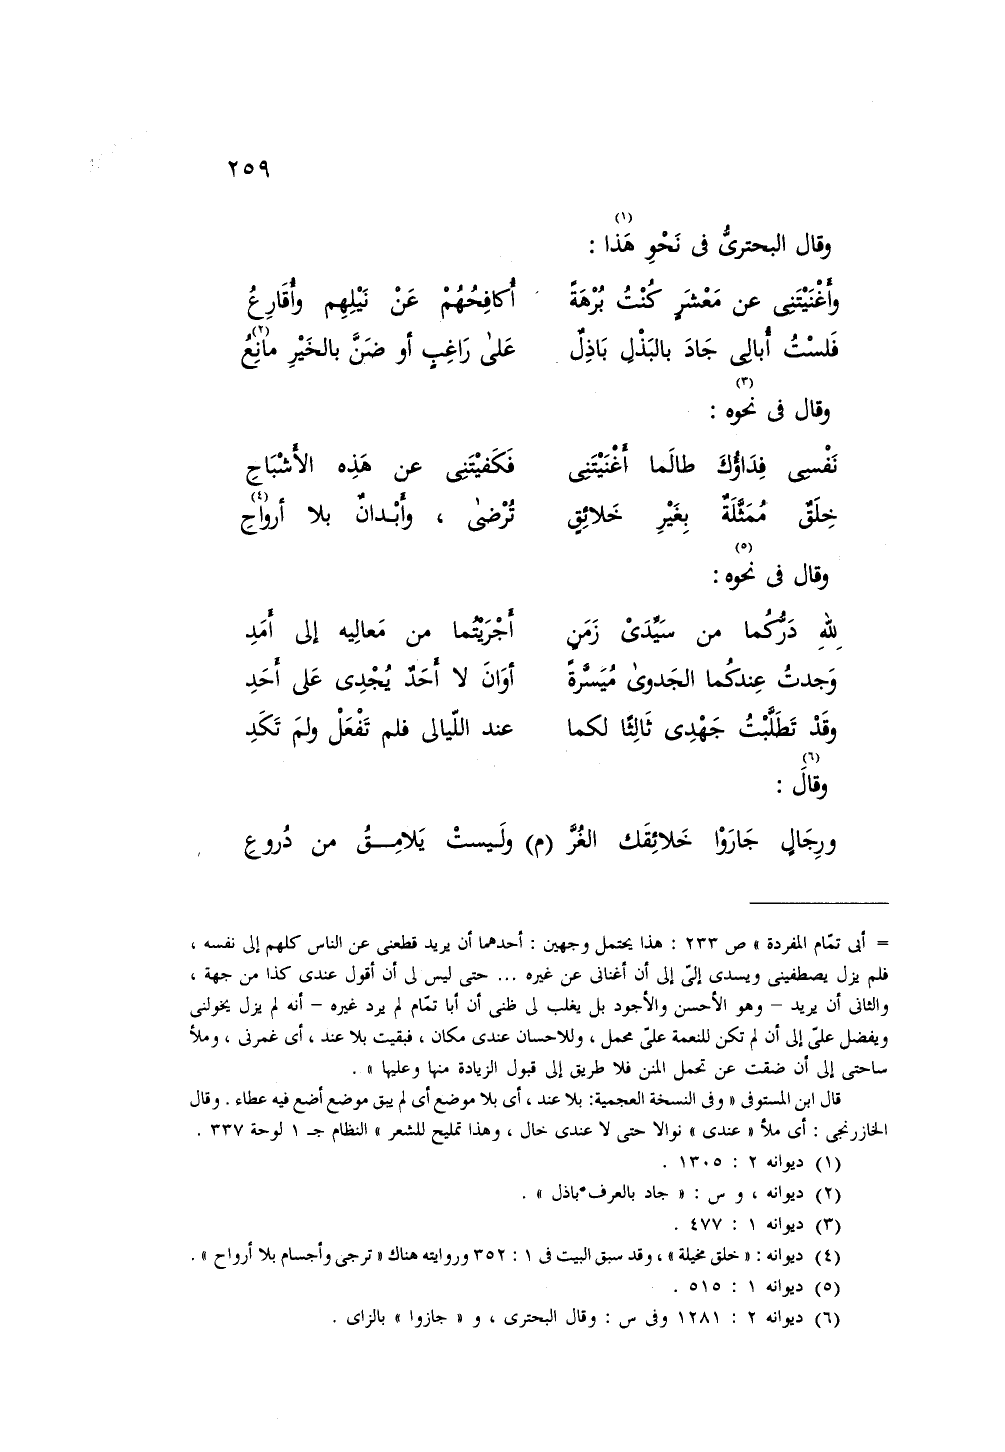 ٢٥٩
وقال البحترىُّ فى نَحْوِ هَذا (١) :
وأَغْنَيْتَنِى عن مَعْشَرٍ كُنْتُ بُرْهَةً أُكافِحُهُمْ عَنْ نَيْلِهِم وأُقَارِعُ
فَلسْتُ أُبالِى جَادَ بالبَذْلِ بَاذِلٌ عَلىٰ رَاغِبٍ أو ضَنَّ بالخَيْرِ مانِعُ (٢)
وقال فى نحوه (٣) :
نَفْسِى فِدَاؤُكَ طالَما أَغْنَيْتَنِى فَكَفيْتَنِى عن هَذِه الأَشْبَاحِ
خِلَقٌ مُمَثَّلَةٌ بِغَيْرِ خَلائِقٍ تُرْضىٰ ، وأَبْدانٌ بلا أرواحِ (٤)
وقال فى نحوه (٥) :
للهِ دَرُّكُما من سَيِّدَىْ زَمَنٍ أَجْرَيْتُما من مَعالِيه إلى أَمَدِ
وَجدتُ عِندكُما الجَدوىٰ مُيَسَّرةً أوَانَ لا أَحَدٌ يُجْدِى عَلى أَحَدِ
وقَدْ تَطَلَّبْتُ جَهْدِى ثَالِثًا لكما عند اللّيالى فلم تَفْعَلْ ولمَ تَكَدِ
وقالَ (٦) :
ورِجالٍ جَارَوْا خَلائِقَك الغُرَّ (م) ولَيستْ يَلامِقُ من دُروعِ
= أبى تمّام المفردة » ص ٢٣٣ : هذا يحتمل وجهين : أحدهما أن يريد قطعنى عن الناس كلهم إلى نفسه ،
فلم يزل يصطفينى ويسدى إلىّ إلى أن أغنانى عن غيره ... حتى ليس لى أن أقول عندى كذا من جهة ،
والثانى أن يريد – وهو الأحسن والأجود بل يغلب لى ظنى أن أبا تمّام لم يرد غيره – أنه لم يزل يخولنى
ويفضل علىّ إلى أن لم تكن للنعمة علىّ محمل ، وللاحسان عندى مكان ، فبقيت بلا عند ، أى غمرنى ، وملأ
ساحتى إلى أن ضقت عن تحمل المنن فلا طريق إلى قبول الزيادة منها وعليها » .
قال ابن المستوفى « وفى النسخة العجمية: بلا عند ، أى بلا موضع أى لم يبق موضع أضع فيه عطاء . وقال
الخازرنجى : أى ملأ « عندى » نوالا حتى لا عندى خال ، وهذا تمليح للشعر » النظام جـ ١ لوحة ٣٣٧ .
(١) ديوانه ٢ : ١٣٠٥ .
(٢) ديوانه ، و س : « جاد بالعرف باذل » .
(٣) ديوانه ١ : ٤٧٧ .
(٤) ديوانه : « خلق مخيلة » ، وقد سبق البيت فى ١ : ٣٥٢ وروايته هناك « ترجى وأجسام بلا أرواح » .
(٥) ديوانه ١ : ٥١٥ .
(٦) ديوانه ٢ : ١٢٨١ وفى س : وقال البحترى ، و « جازوا » بالزاى .